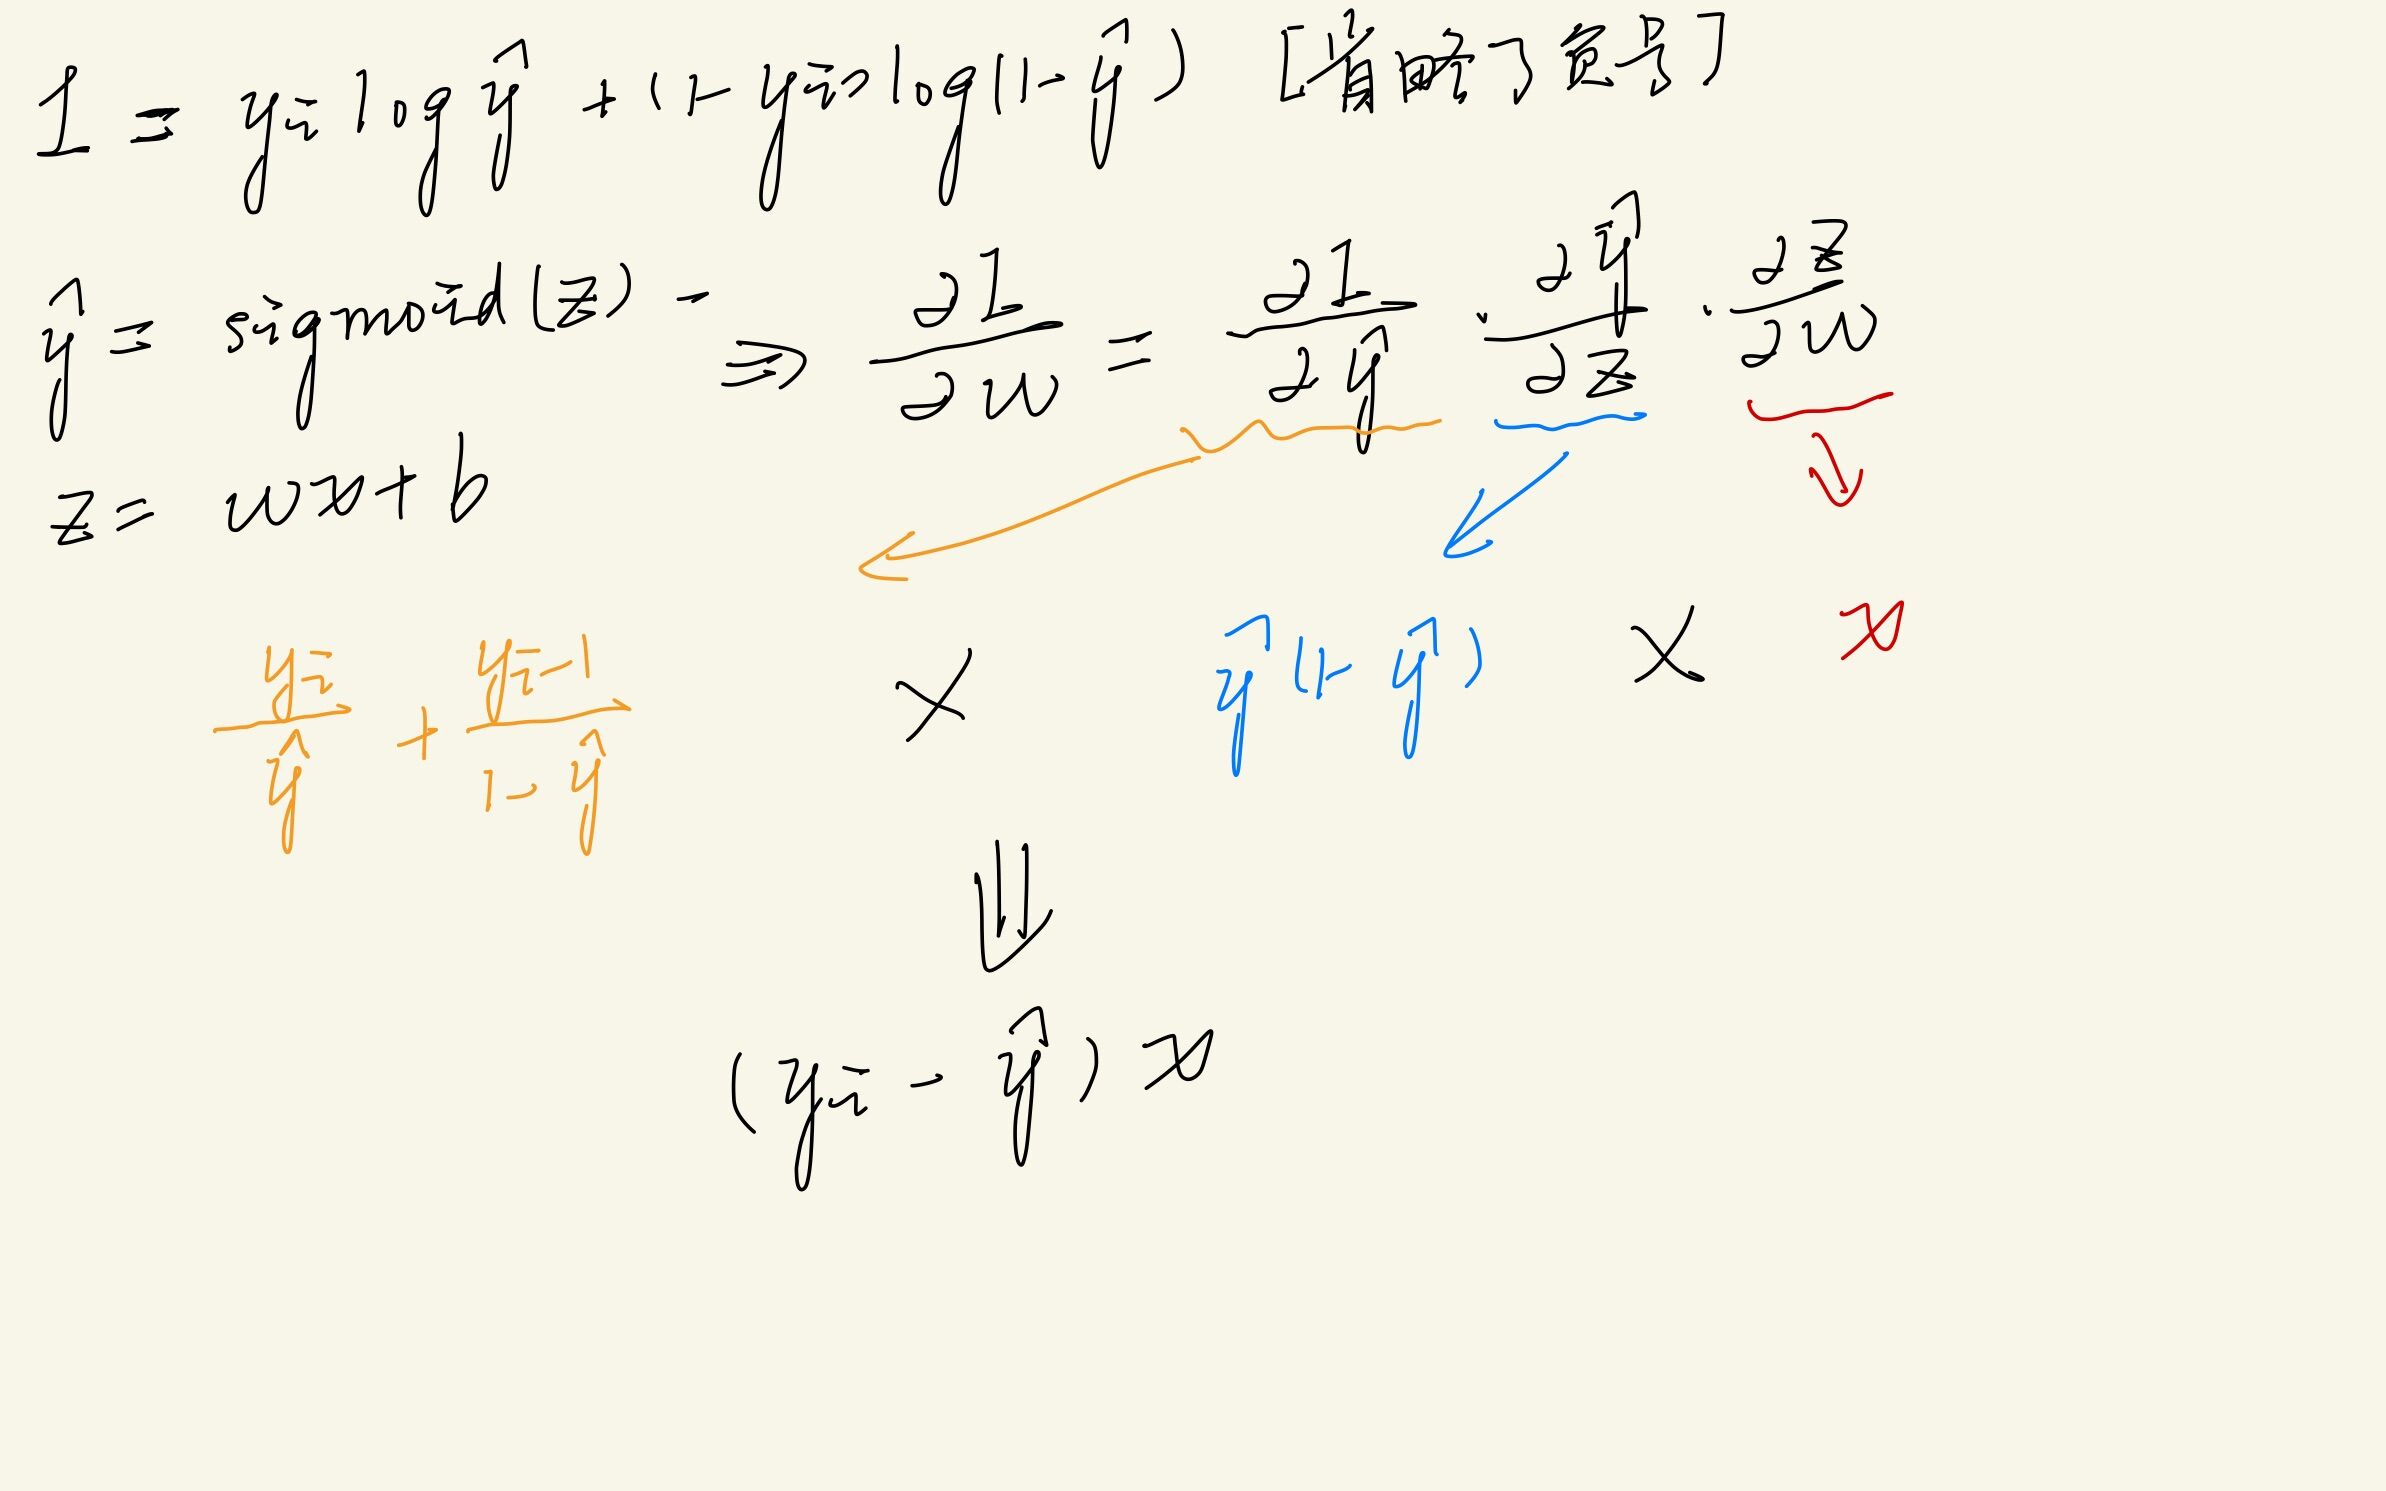 l = yᵢ log ŷ + (1-yᵢ) log(1-ŷ) [省略了负号]
ŷ = sigmoid(z) ⇒ ∂l/∂w = ∂l/∂ŷ · ∂ŷ/∂z · ∂z/∂w
z = wx+b
yᵢ/ŷ + yᵢ-1/1-ŷ × ŷ(1-ŷ) × x
⇓
(yᵢ - ŷ)x